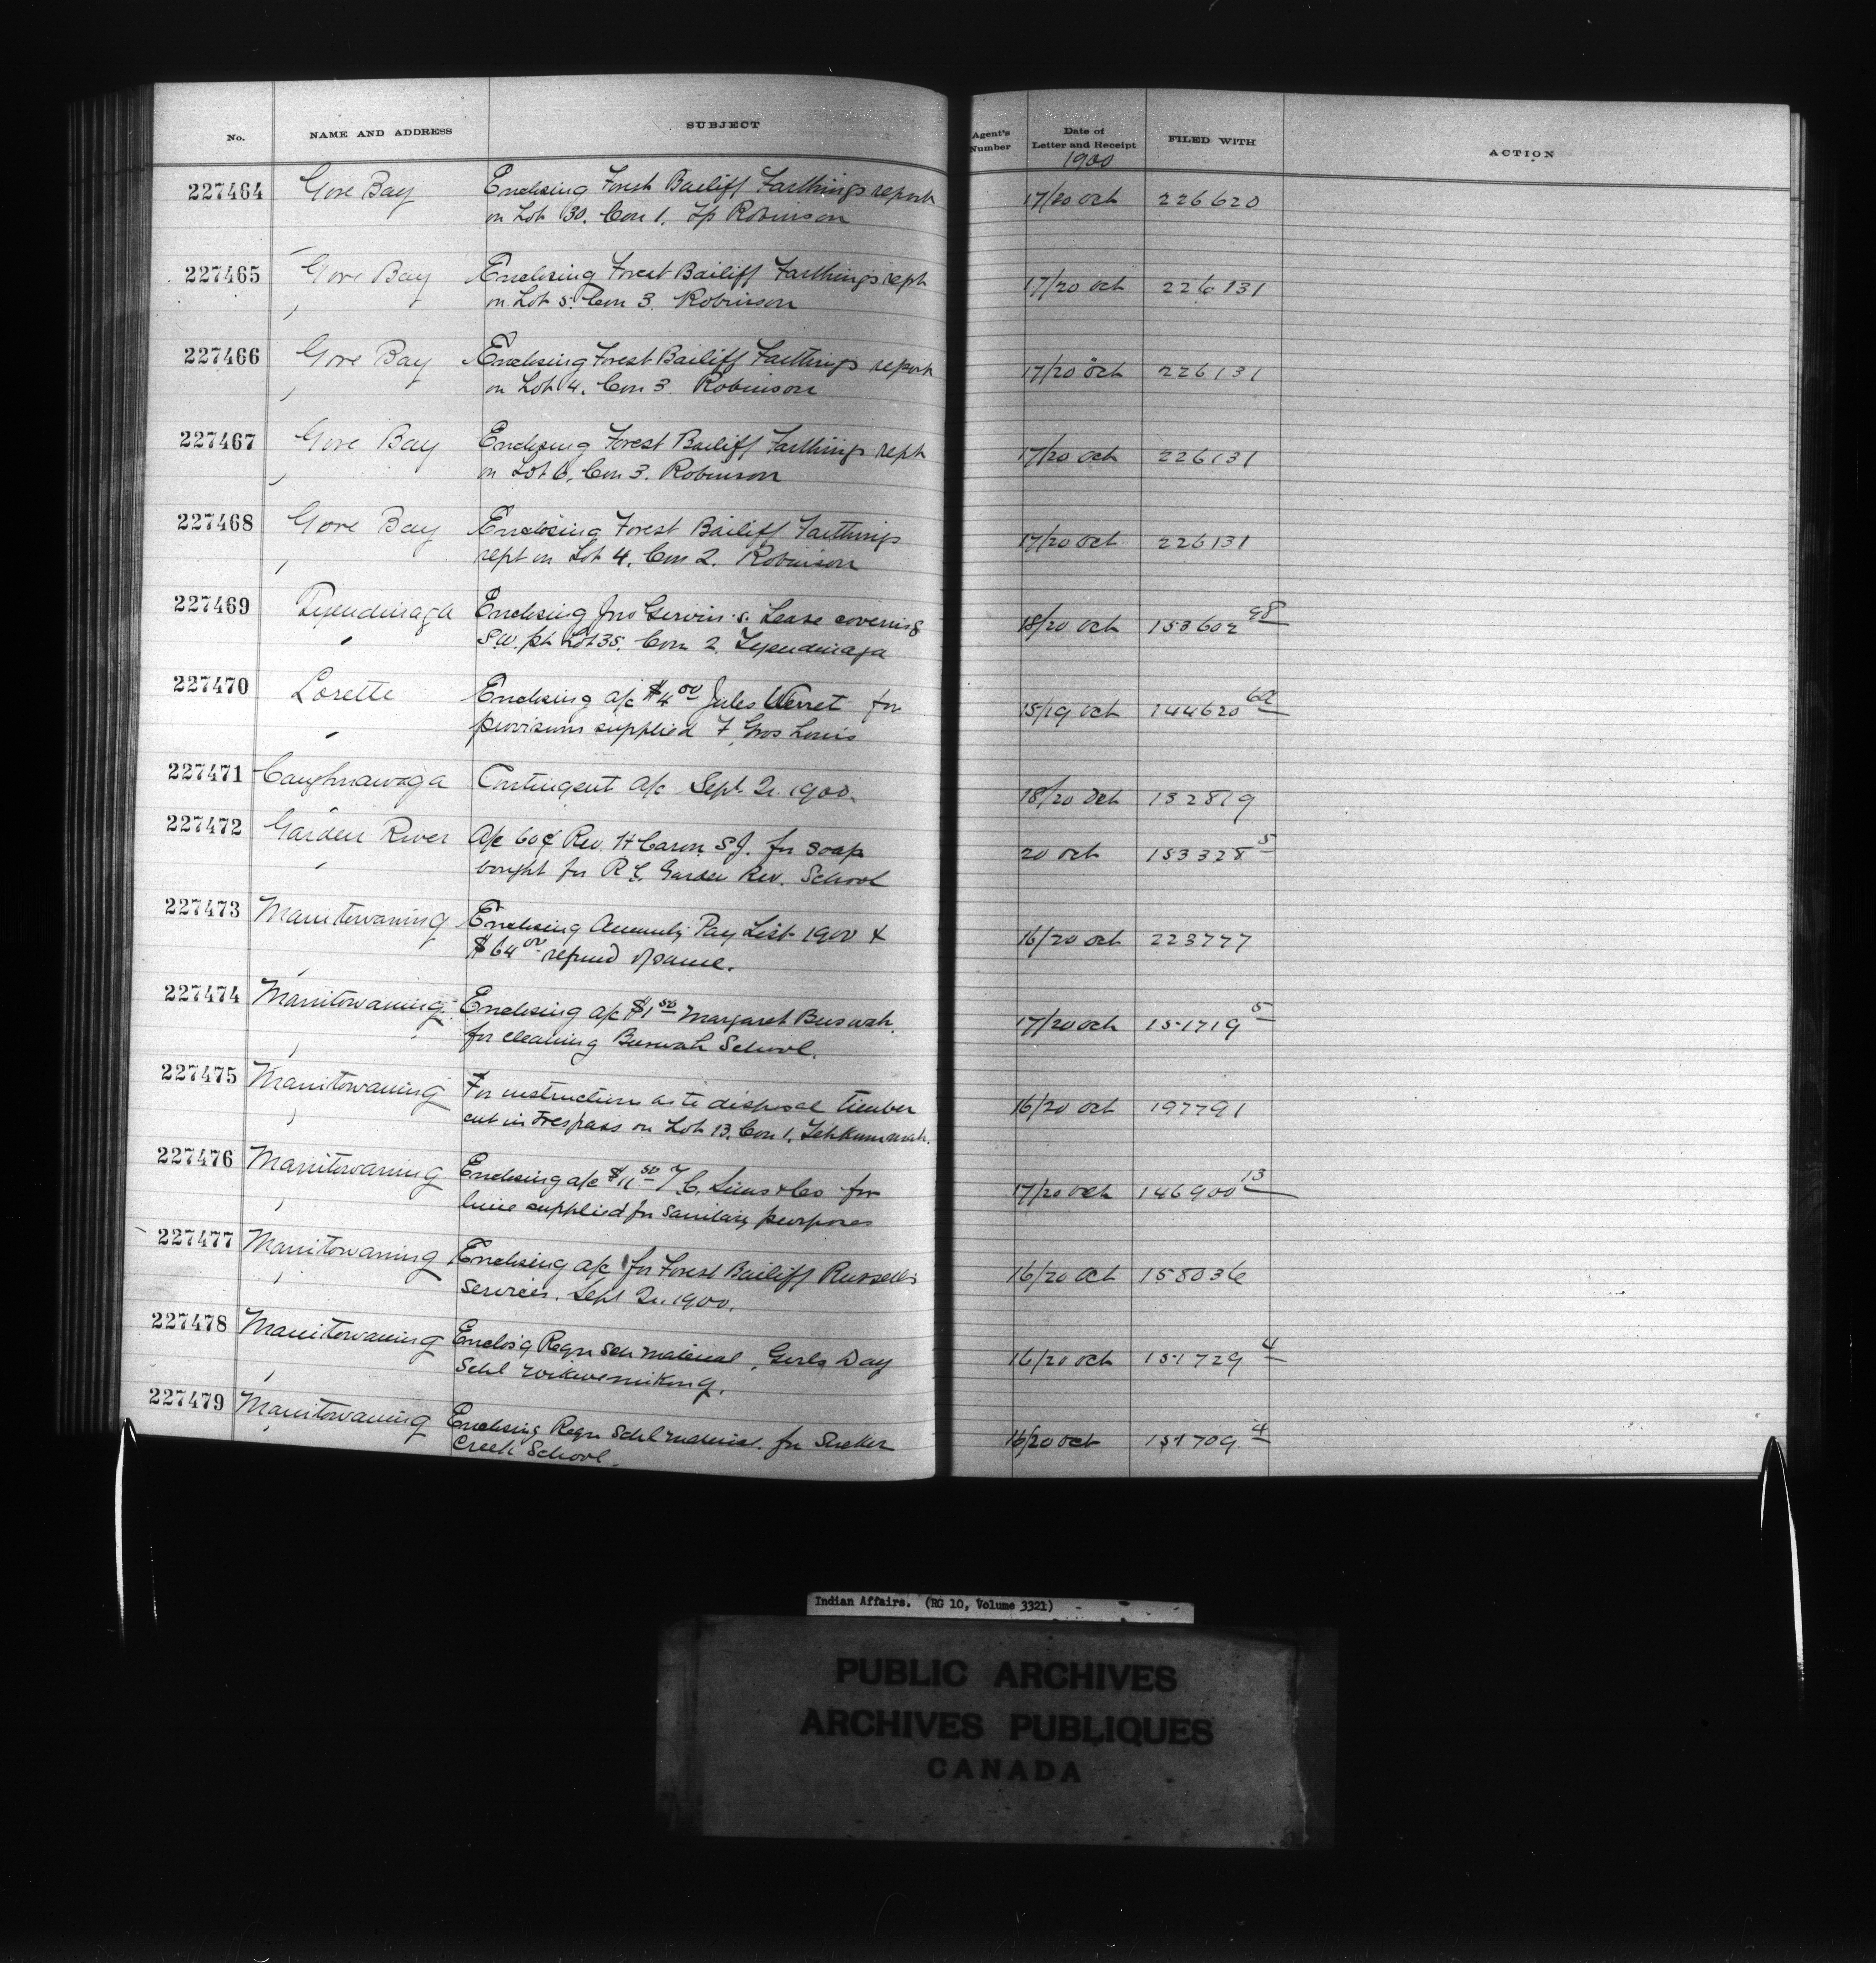 No. NAME AND ADDRESS SUBJECT Agent's Number Date of Letter and Receipt FILED WITH ACTION
1900
227464 Gore Bay Enclosing Forest Bailiff Farthings report 17/20 Oct 226620
on Lot 30. Con 1. Tp Robinson
227465 Gore Bay Enclosing Forest Bailiff Farthings rept 17/20 Oct 226131
on Lot 5. Con 3. Robinson
227466 Gore Bay Enclosing Forest Bailiff Farthings report 17/20 Oct 226131
on Lot 4. Con 3. Robinson
227467 Gore Bay Enclosing Forest Bailiff Farthings rept 17/20 Oct 226131
on Lot 6. Con 3. Robinson
227468 Gore Bay Enclosing Forest Bailiff Farthings 17/20 Oct 226131
rept on Lot 4. Con 2. Robinson
227469 Tyendinaga Enclosing Jno Lease covering 18/20 Oct 153602 98
" S.W. pt Lot 35. Con 2. Tyendinaga
227470 Lorette Enclosing a/c $4 00 Jules for 15/19 Oct 144620
" provisions supplied F Gros Louis
227471 Caughnawaga Contingent a/c Sept. Qr. 1900. 18/20 Oct 132819
227472 Garden River A/c 60¢ Rev. H Caron S.J. for soap 20 Oct 153328 5
" bought for R C. Garden Riv. School
227473 Manitowaning Enclosing Annuity Pay List 1900 & 16/20 Oct 223777
$64 00 refund of same.
227474 Manitowaning Enclosing a/c $1 50 Margaret Buswah 17/20 Oct 151719 5
for cleaning Buswah School.
227475 Manitowaning For instructions as to disposal timber 16/20 Oct 197791
cut in trespass on Lot 13. Con 1. Tehkummah.
227476 Manitowaning Enclosing a/c $11 50 T. C. Sims & Co for 17/20 Oct 146900 13
lime supplied for sanitary purposes
227477 Manitowaning Enclosing a/c for Forest Bailiff Russell's 16/20 Oct 158036
Services. Sept Qr. 1900.
227478 Manitowaning Enclos'g Reqn Sch material, Girls Day 16/20 Oct 151729 4
Schl Wikwemikong.
227479 Manitowaning Enclosing Reqn Schl material. for Sucker 16/20 Oct 151709 4
Creek School.
Indian Affairs. (RG 10, Volume 3321)
PUBLIC ARCHIVES
ARCHIVES PUBLIQUES
CANADA